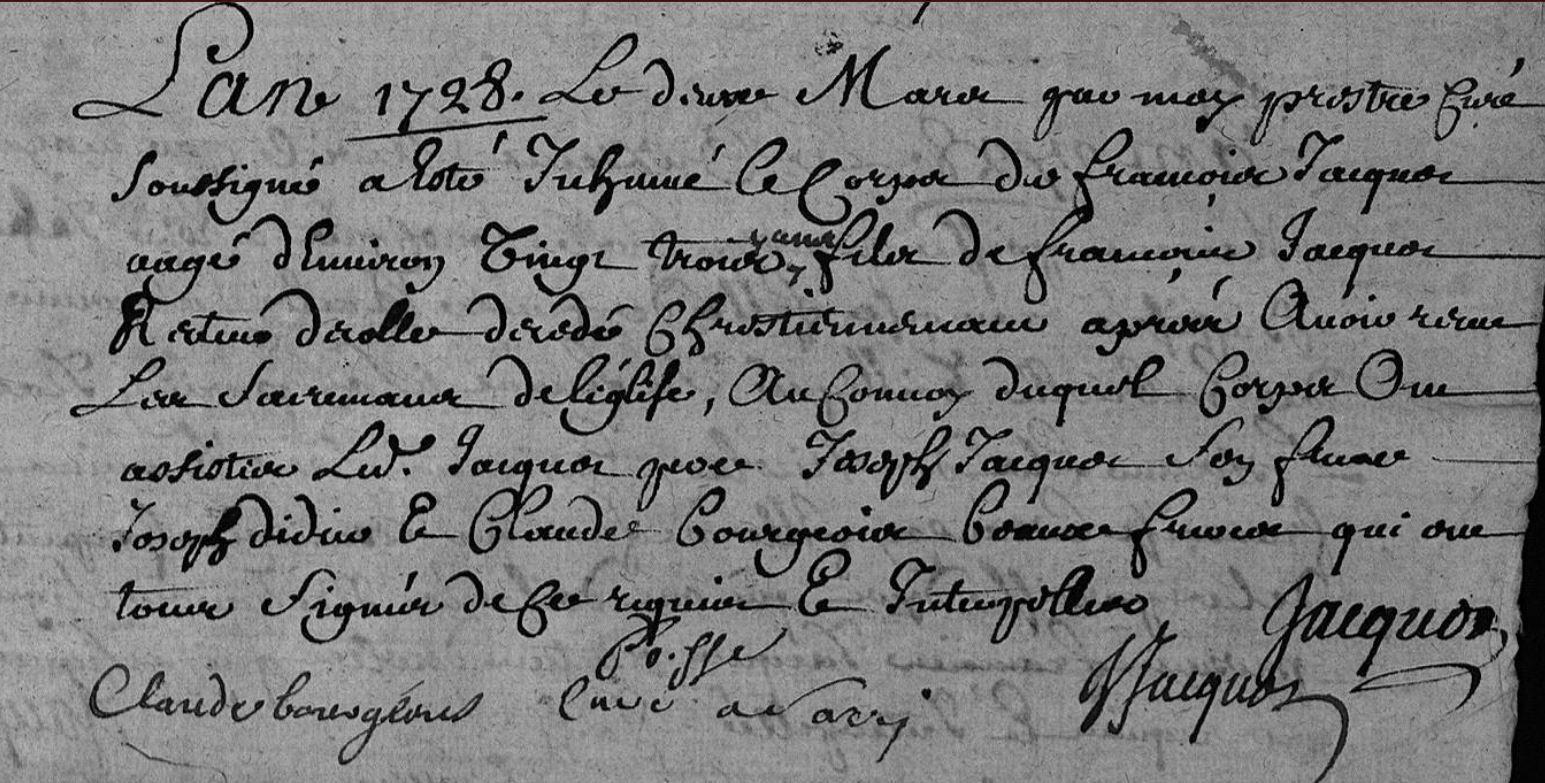 L'an 1728. Le deuxe Mars par moy prestre Curé
soussigné a Esté Inhumé le Corps de françois Jacquot
aagé d'Environ Vingt trois ans fils de françois Jacquot
décédé Chrestiennement après Avoir receu
Les Sacremans de l'église, Au Convoy duquel Corps Ont
assisté Led. Jacquot pere Joseph Jacquot Son frere
Joseph didier Et Claude bourgeois beaux freres qui ont
tous Signés de Ce requis Et Interpellés Jacquot
Claude bourgeois Curé J Jacquot